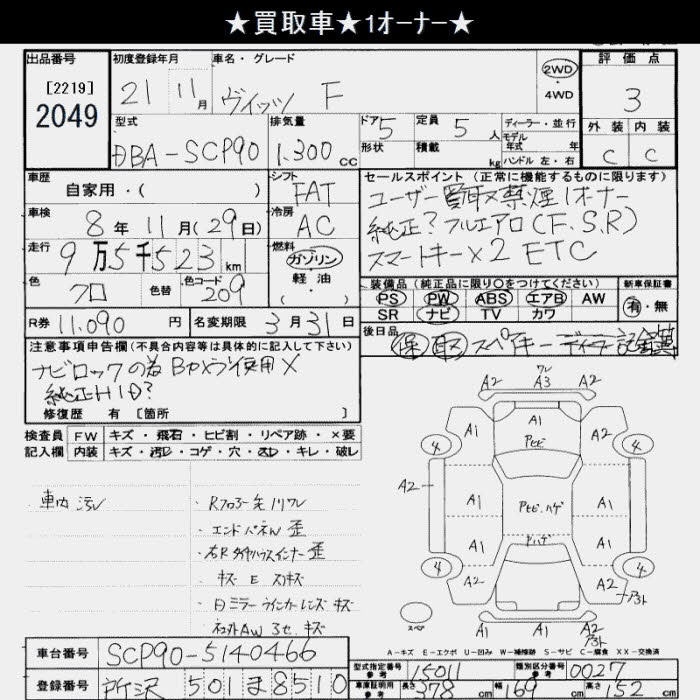 ★買取車★1オーナー★
出品番号 初度登録年月 車名・グレード 評価点
[2219]
2049
21 11月 ヴィッツ F
2WD
・
4WD
3
外装 内装
C C
型式 排気量 ドア 5 定員 5人 ディーラー・並行
モデル年式 年
DBA-SCP90 1.300cc 形状 積載 kg ハンドル 左・右
車歴 シフト
自家用・( ) FAT
車検 冷房
8年11月(29日) AC
走行 燃料
9万5千523km ガソリン
軽油
・( )
色 色替 色コード
クロ 209
セールスポイント(正常に機能するものに限ります)
ユーザー買取 禁煙 1オーナー
純正?フルエアロ(F.S.R)
スマートキー×2 ETC
装備品(純正品に限り○をつけてください) 新車保証書
PS PW ABS エアB AW 有・無
SR ナビ TV カワ
R券 11.090円 名変期限 3月31日
後日品 保 取 スペアキー
注意事項申告欄(不具合内容等は具体的に記入して下さい)
ナビロックの為Bカメラ使用×
純正HID?
修復歴 有 [箇所 ]
検査員 FW キズ・飛石・ヒビ割・リペア跡・×要
記入欄 内装 キズ・汚レ・コゲ・穴・スレ・キレ・破レ
車内汚レ
・エンドパネル 歪
・キズ E スリキズ
ワレ
A2 A3 A2
A1 A1 A2
4 4
A2 A1 A1
A1 A1
4 4
A2 A2
A1 A1 A2
スペア
A-キズ E-エクボ U-凹み W-補修跡 S-サビ C-腐食 XX-交換済
車台番号 SCP90-5140466
登録番号 所沢 501 ま 8510
型式指定番号 参考 15011 類別区分番号 参考 0027
車庫証明用 参考 長さ 378cm 幅 169cm 高さ 152cm